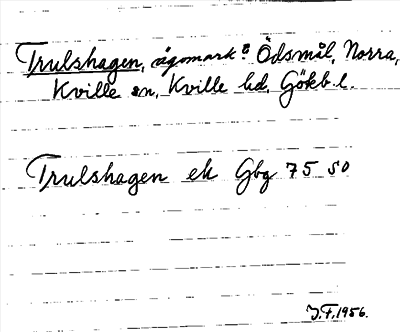 Trulshagen, ägomark? Ödsmål, Norra,
Kville sn, Kville hd, Göteb. l.
Trulshagen ek Gbg 75 SO
J.F. 1956.